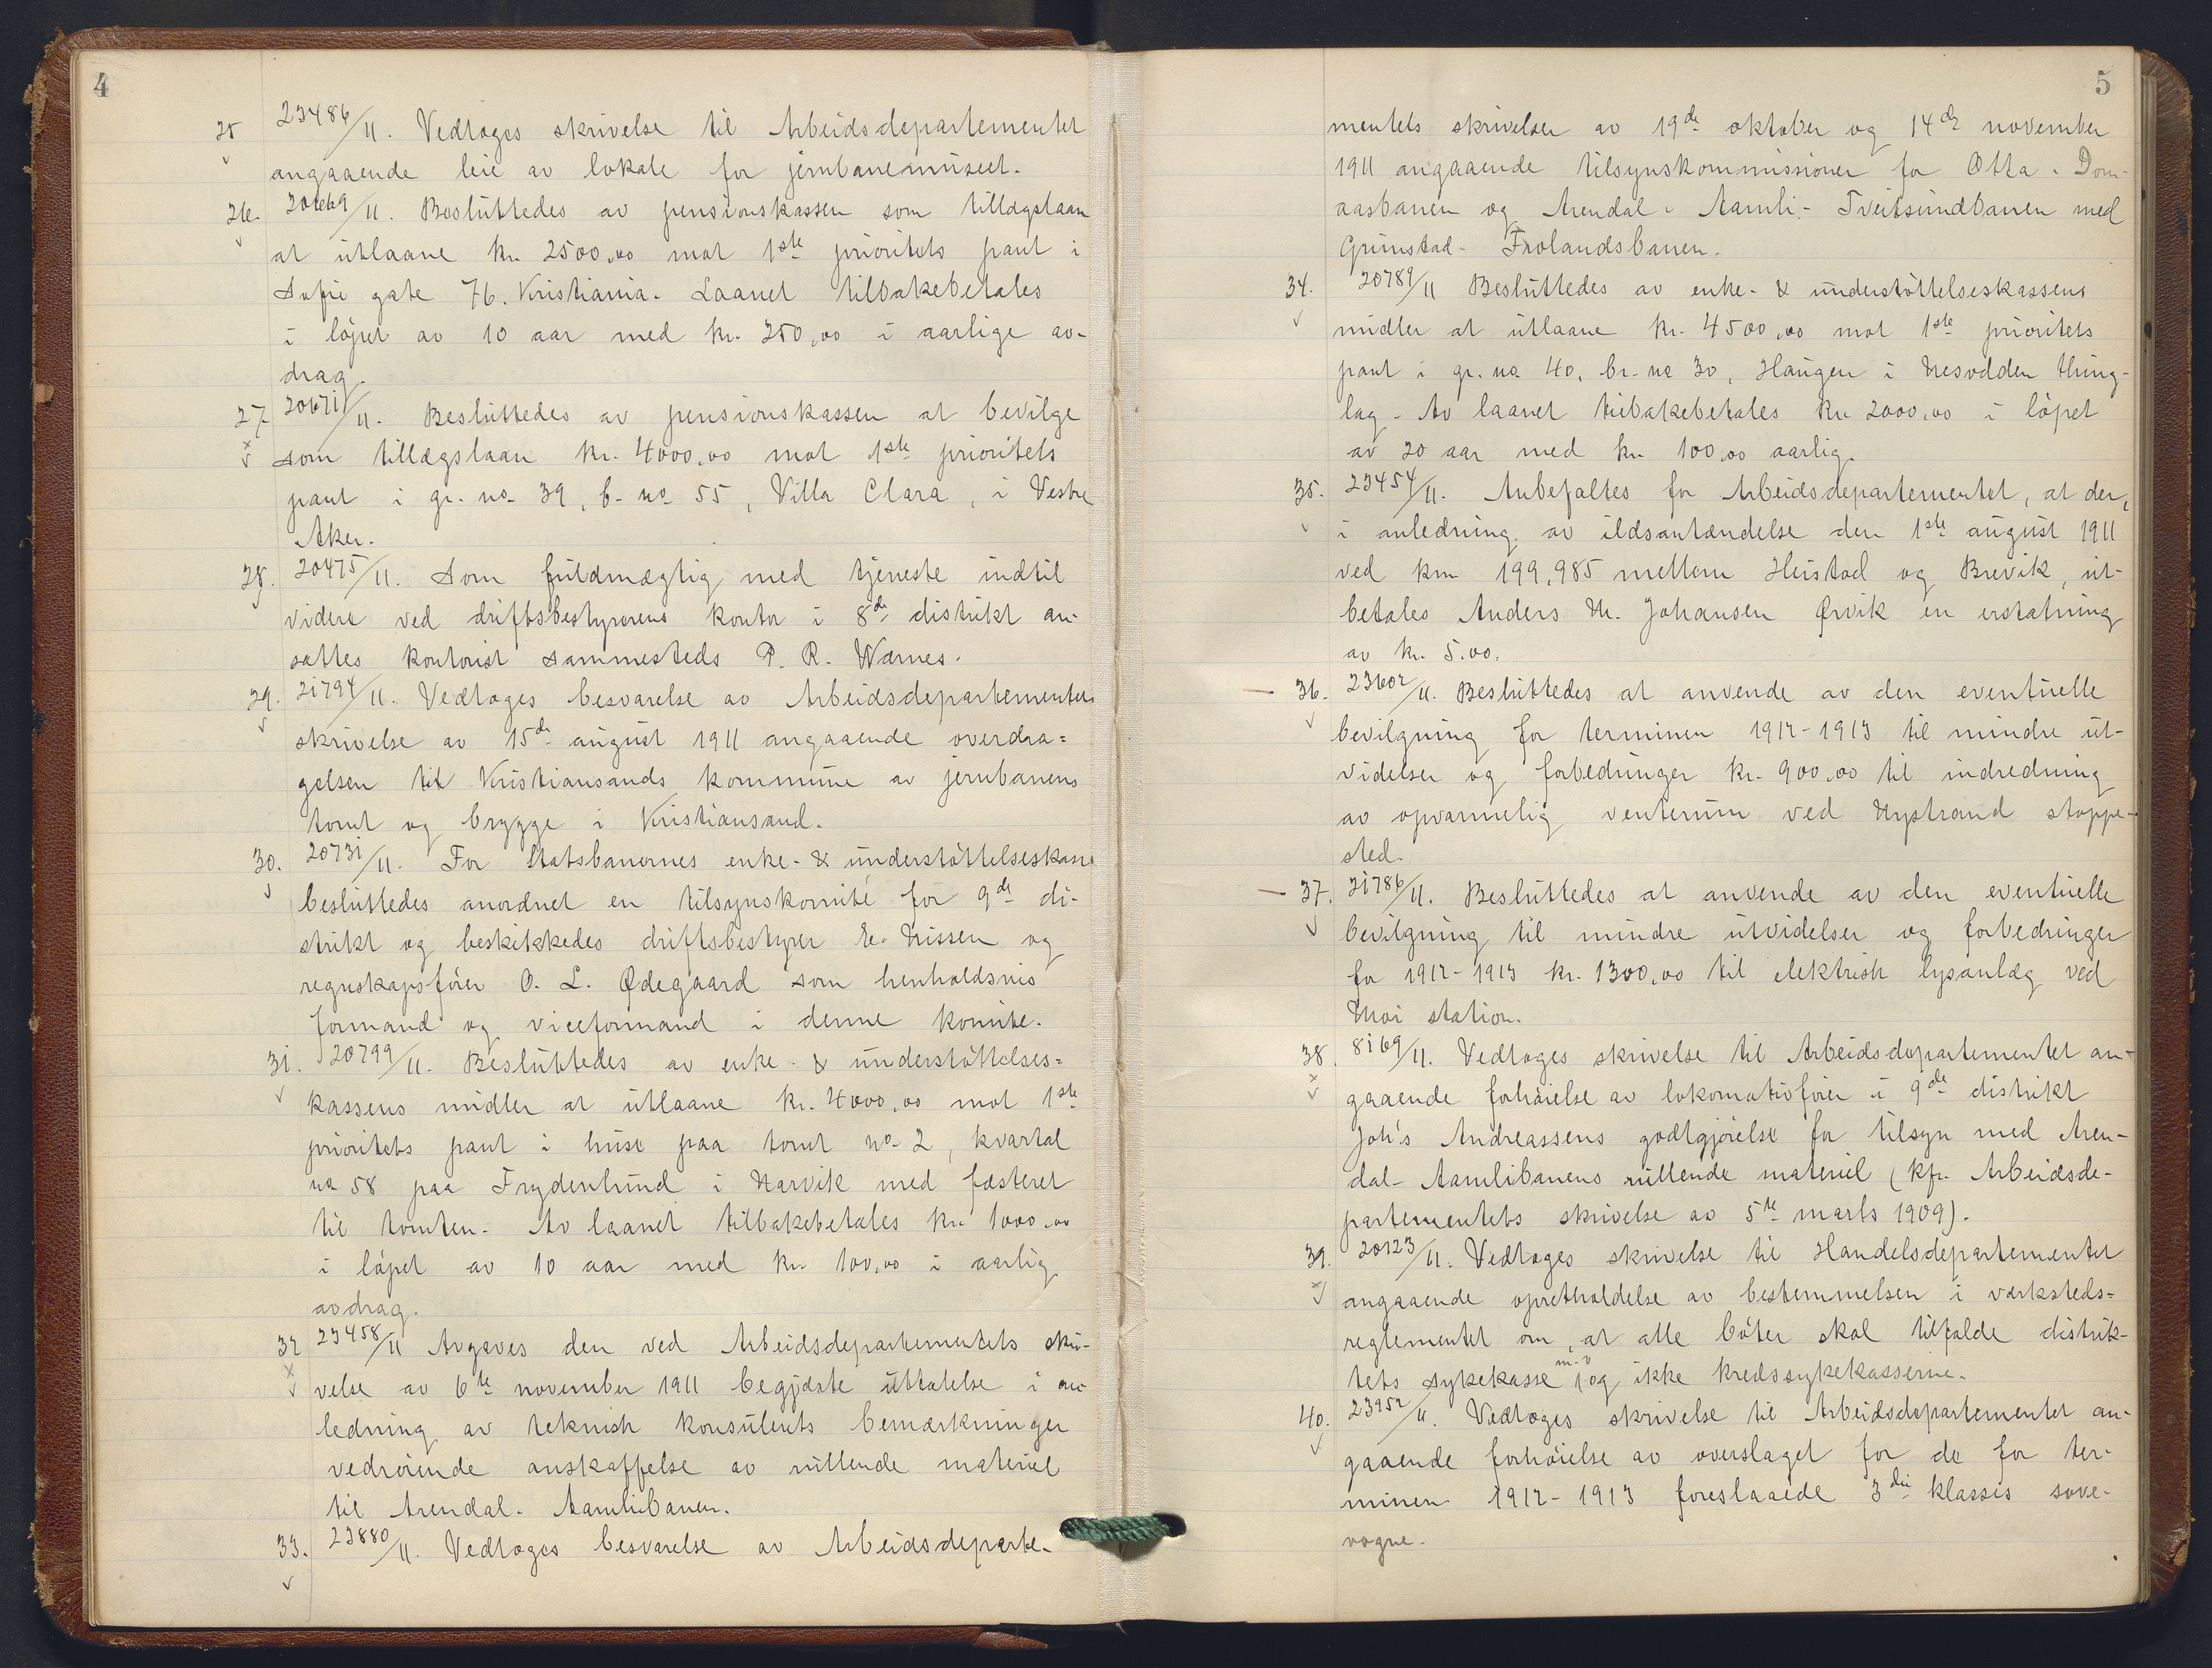 4
25 23486/11. Vedtoges skrivelse til Arbeidsdepartementet
angaaende leie av lokale for jernbanemuseet.
26. 20669/11. Besluttedes av pensionskassen som tillægslaan
at utlaane kr. 2500,00 mot 1ste prioritets pant i
Sofie gate 76. Kristiania. Laanet tilbakebetales
i løpet av 10 aar med kr. 250,00 i aarlige av-
drag.
27 20671/11. Besluttedes av pensionskassen at bevilge
som tillægslaan kr. 4000,00 mot 1ste prioritets
pant i gr. no. 39, b. no 55, Villa Clara, i Vestre
Aker.
28. 20475/11. Som fuldmægtig med tjeneste indtil
videre ved driftsbestyrerens kontor i 8de distrikt an-
sattes kontorist sammesteds P. R. Warnes.
29. 21794/11. Vedtoges besvarelse av Arbeidsdepartementets
skrivelse av 15de august 1911 angaaende overdra=
gelsen til Kristiansands kommune av jernbanens
tomt og brygge i Kristiansand.
30. 20731/11. For Statsbanernes enke- & understøttelseskasse
besluttedes anordnet en tilsynskomité for 9de di-
strikt og beskikkedes driftsbestyrer E. Nissen og
regnskapsfører O. L. Ødegaard som henholdsvis
formand og viceformand i denne komite.
31. 20799/11. Besluttedes av enke- & understøttelses=
kassens midler at utlaane kr. 4000,00 mot 1ste
prioritets pant i huse paa tomt no. 2, kvartal
no 58 paa Frydenlund i Narvik med fæsteret
til tomten. Av laanet tilbakebetales kr. 1000,00
i løpet av 10 aar med kr. 100,00 i aarlig
avdrag.
32 23458/11 Avgaves den ved Arbeidsdepartementets skri-
velse av 6te november 1911 begjærte uttalelse i an-
ledning av teknisk konsulents bemærkninger
vedrørende anskaffelse av rullende materiel
til Arendal-Aamlibanen.
33. 23880/11. Vedtoges besvarelse av Arbeidsdeparte-
5
mentets skrivelser av 19de oktober og 14de november
1911 angaaende tilsynskommissioner for Otta - Dom-
aasbanen og Arendal - Aamli - Tveitsundbanen med
Grimstad - Frolandsbanen.
34. 20789/11 Besluttedes av enke- & understøttelseskassens
midler at utlaane kr. 4500,00 mot 1ste prioritets
pant i gr. no 40, br. no 30, Haugen i Nesodden thing-
lag. Av laanet tilbakebetales kr 2000,00 i løpet
av 20 aar med kr 100,00 aarlig.
35. 23454/11. Anbefaltes for Arbeidsdepartementet, at der,
i anledning av ildsantændelse den 1ste august 1911
ved km 199,985 mellem Heistad og Brevik, ut-
betales Anders M. Johansen Ørvik en erstatning
av kr. 5.00.
— 36. 23602/11. Besluttedes at anvende av den eventuelle
bevilgning for terminen 1912-1913 til mindre ut-
videlser og forbedringer kr. 900,00 til indredning
av opvarmelig venterum ved Nystrand stoppe-
sted.
— 37. 21786/11. Besluttedes at anvende av den eventuelle
bevilgning til mindre utvidelser og forbedringer
for 1912-1913 kr. 1300,00 til elektrisk lysanlæg ved
Moi station.
38. 8169/11. Vedtoges skrivelse til Arbeidsdepartementet an-
gaaende forhøielse av lokomotivfører i 9de distrikt
Joh's Andreassens godtgjørelse for tilsyn med Aren-
dal-Aamlibanens rullende materiel (kfr. Arbeidsde-
partementets skrivelse av 5te marts 1909).
39. 20123/11. Vedtoges skrivelse til Handelsdepartementet
angaaende opretholdelse av bestemmelsen i værksteds=
reglementet om, at alle bøter skal tilfalde distrik-
tets sykekasse m.v. og ikke kredssykekasserne.
40. 23952/11. Vedtoges skrivelse til Arbeidsdepartementet an-
gaaende forhøielse av overslaget for de for ter-
minen 1912-1913 foreslaaede 3die klasses sove-
vogne.